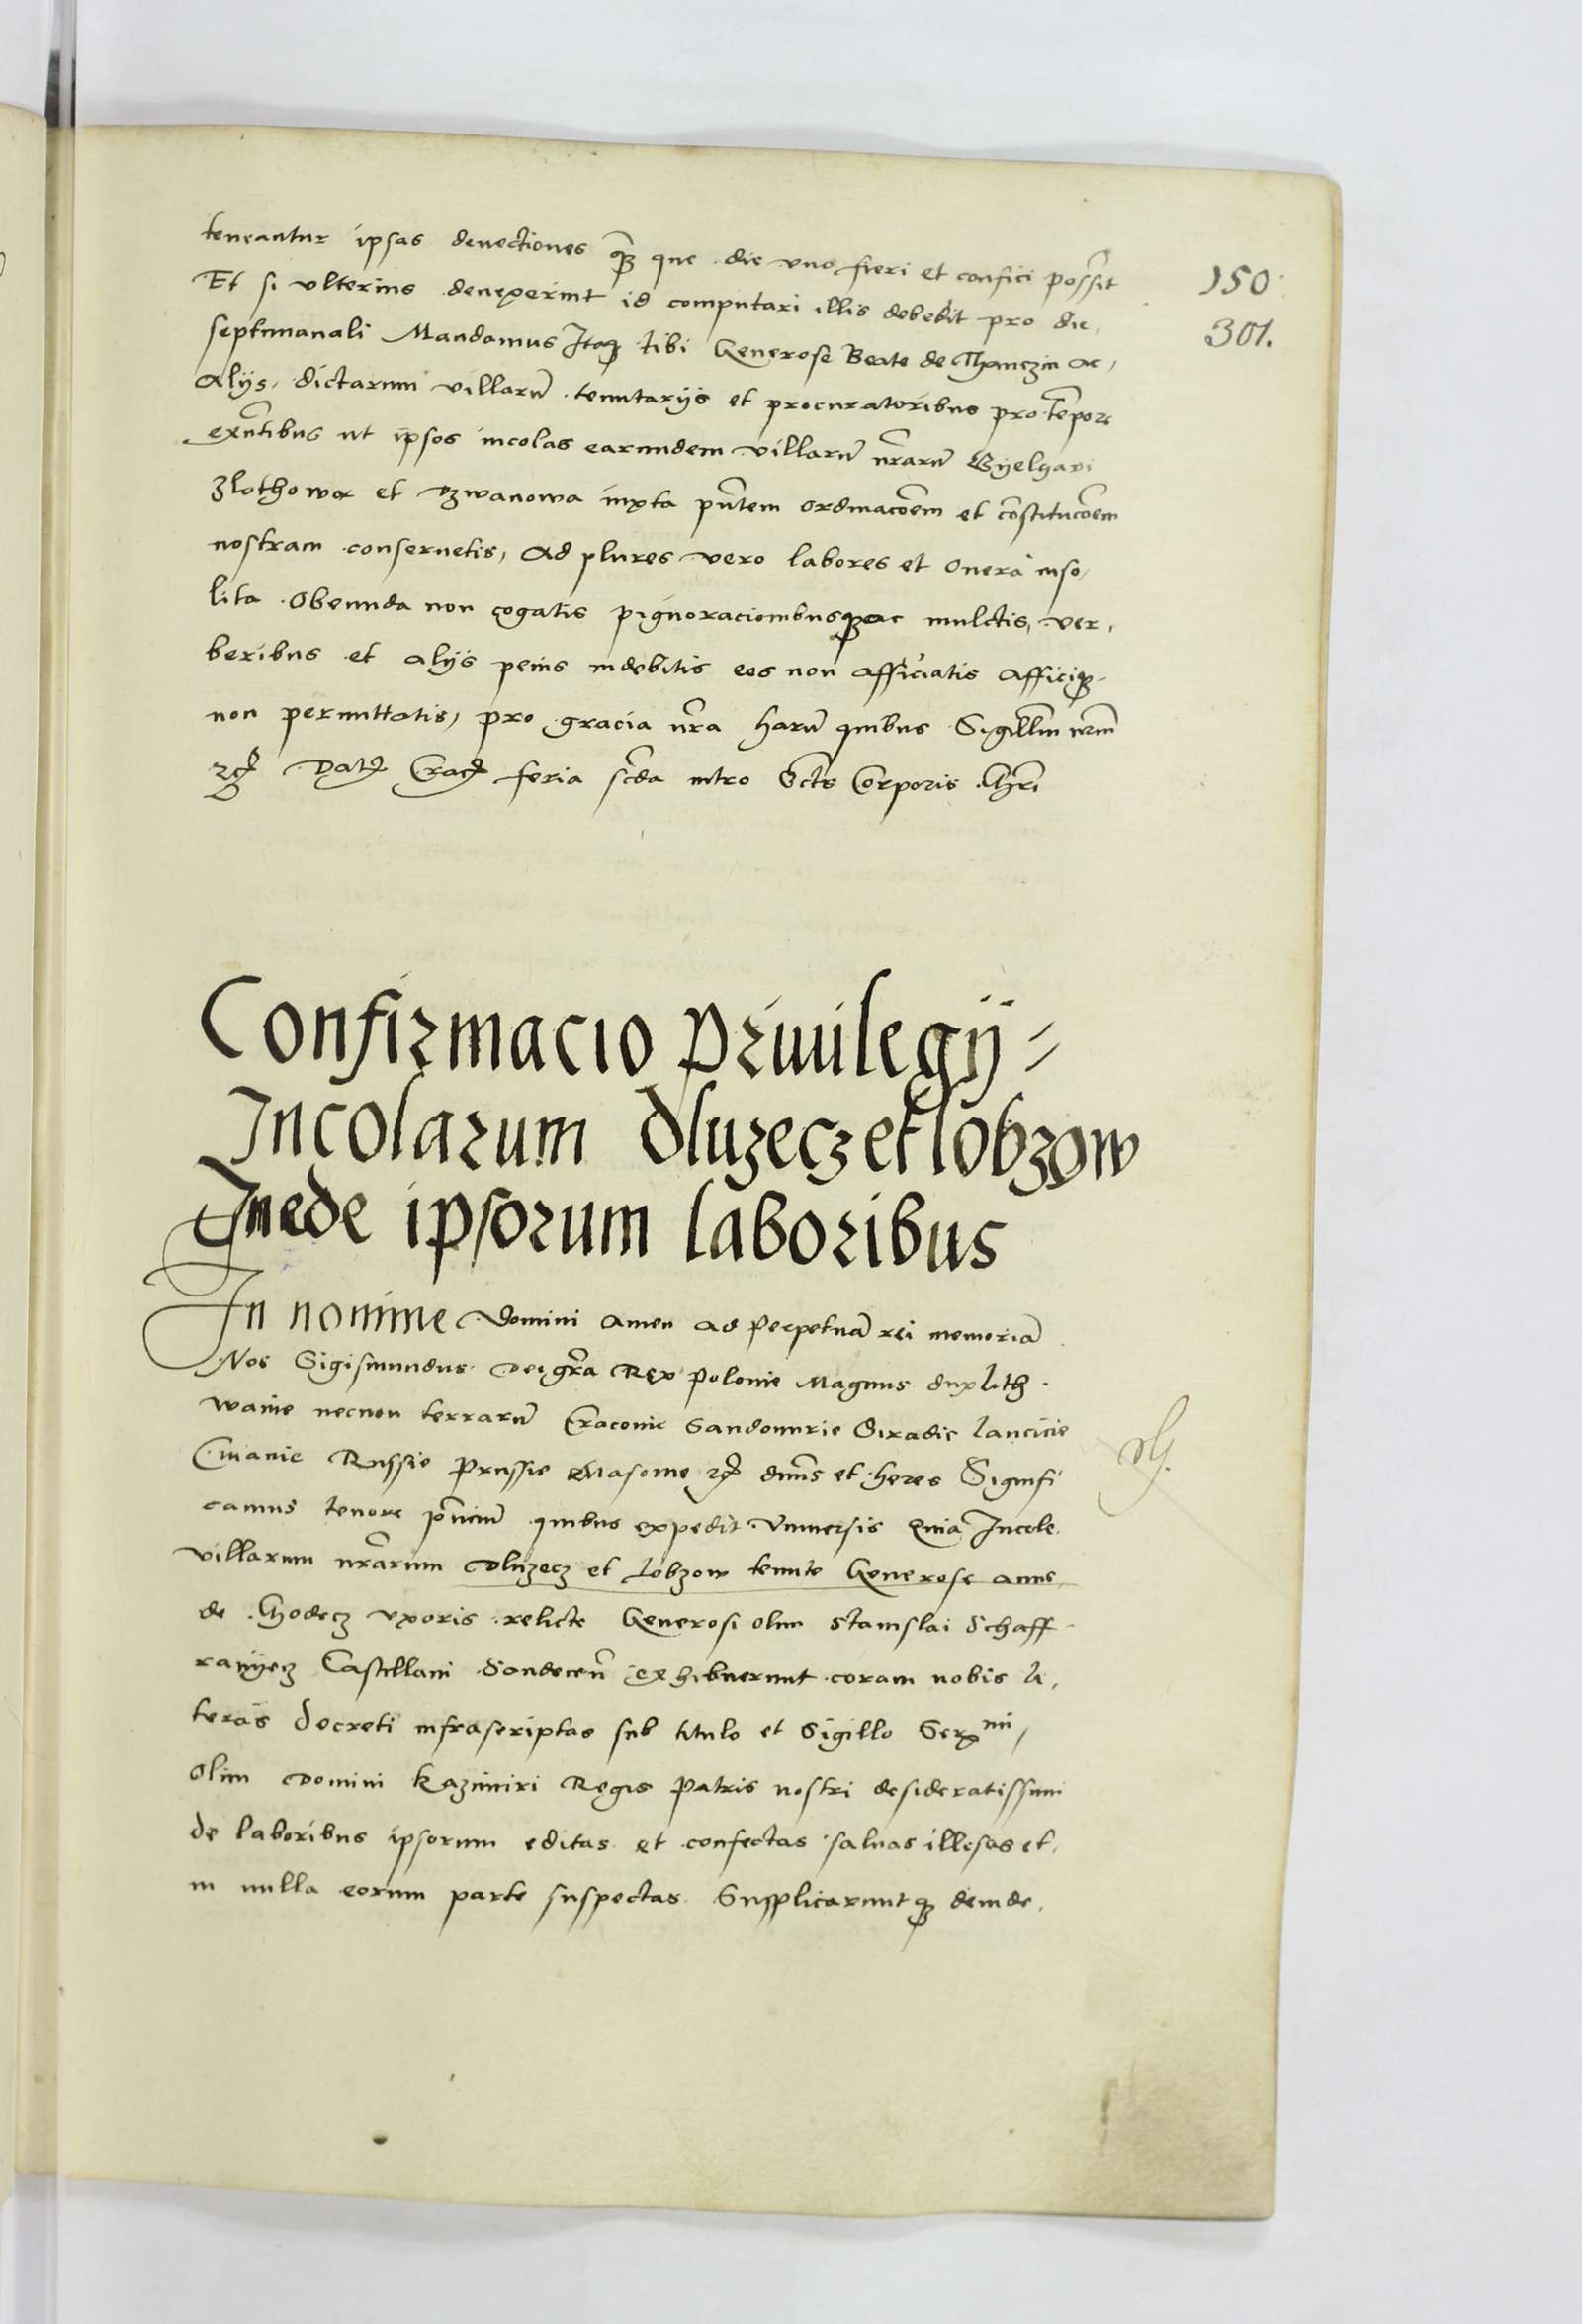 teneantur ipsas devectiones que die uno fieri et confici possint
150
Et si ulterius devexerint id computari illis debebit pro die,
301.
septimanali Mandamus Itaqꝫ tibi Generose Beate de Thanczin ac,
alijs, dictarum villarũ tenutarijs et procuratoribus pro tempore
exñtibus ut ipsos incolas earundem villarũ nr̃arũ Gyelgavi
Zlothowa et Dzwanowa iuxta pñtem ordinacõem et cõstitucõem
nostram conservetis, Ad plures vero labores et onera inso,
lita obeunda non cogatis pignoracionibusqꝫ ac mulctis, ver,
beribus et alijs penis indebitis eos non afficiatis afficiqꝫ
non permittatis, pro gracia nr̃a harũ quibus Sigillm̃ nr̃m
Datꝭ Cracꝭ feria scd̃a intro Octs Corporis Chrĩ
Confirmacio Privilegij
Incolarum Dluzecz et lobzow
de ipsorum laboribus
In nomine Domini amen ad perpetuã rei memoriã
Nos Sigismundus Dei gr̃a Rex Polonie Magnus dux lith
wanie necnon terrarũ Cracovie Sandomirie Siradie lancicie
Cuiavie Russie Prussie Masovie dnũs et heres Signifi
camus tenore pñciũ quibus expedit universis Quia Incole
villarum nr̃arum Dluzecz et lobzow tenute Generose anne
de Chodecz uxoris relicte Generosi olim Stanislai Schaff
ranyecz Castellani Sandecen̄ exhibuerunt coram nobis li,
teras decreti infrascriptas sub titulo et Sigillo Serᵐⁱ,
olim Domini Kazimiri Regis Patris nostri desideratissimi
de laboribus ipsorum editas et confectas salvas illesas et,
in nulla eorum parte suspectas Supplicaruntqꝫ deinde,